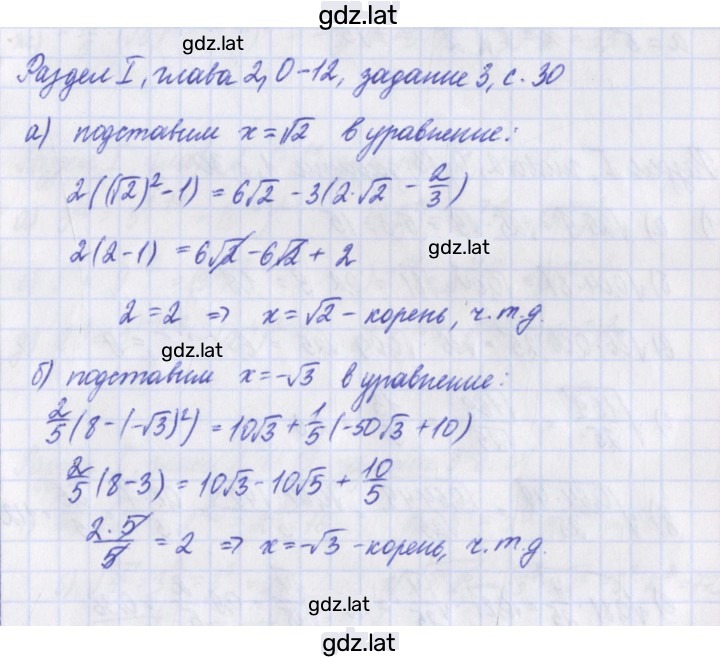 gdz.lat
gdz.lat
Раздел I, глава 2, О-12, задание 3, с. 30
а) подставим x=√2 в уравнение:
2((√2)²-1) = 6√2 - 3(2·√2 - 2/3)
2(2-1) = 6√2 - 6√2 + 2
gdz.lat
2 = 2 => x=√2 - корень, ч.т.д.
gdz.lat
б) подставим x=-√3 в уравнение:
2/5(8-(-√3)²) = 10√3 + 1/5(-50√3 + 10)
2/5(8-3) = 10√3 - 10√5 + 10/5
2·5/5 = 2 => x=-√3 - корень, ч.т.д.
gdz.lat
gdz.lat